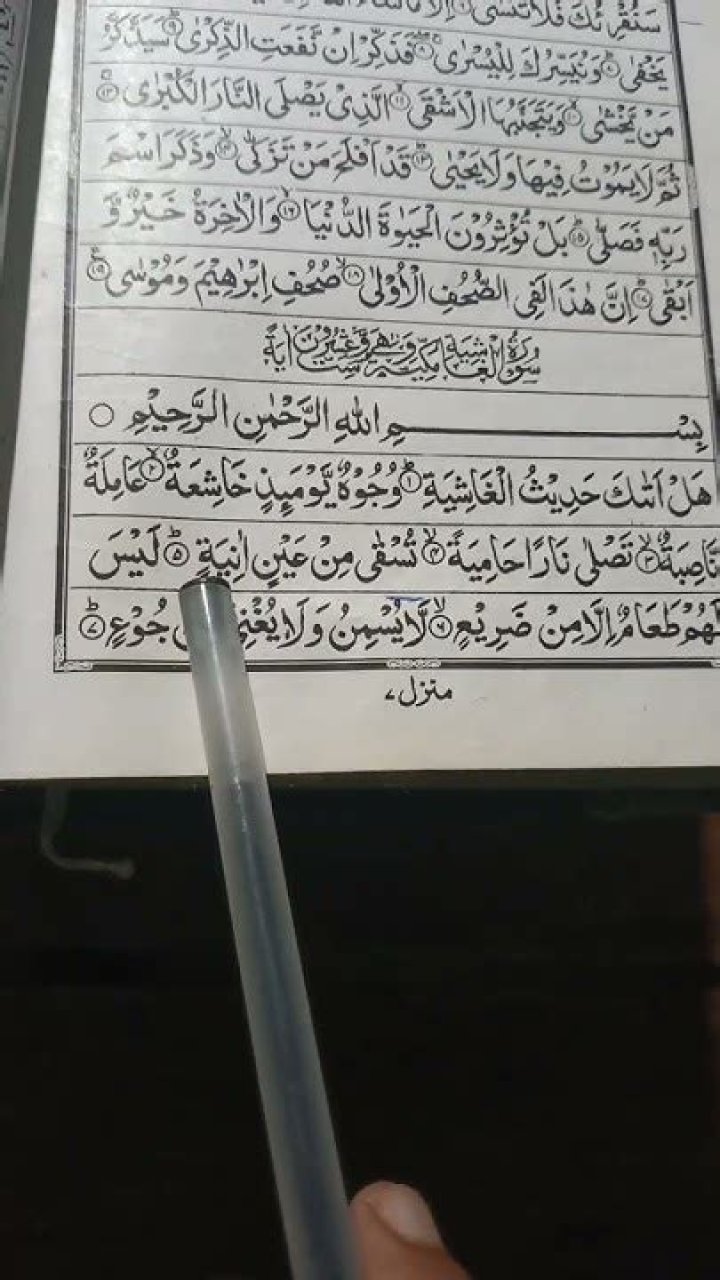 سَنُقْرِئُكَ فَلَا تَنْسٰٓى
يَخْفٰى ؕ وَنُيَسِّرُكَ لِلْيُسْرٰى ۚۖ۸ فَذَكِّرْ اِنْ نَّفَعَتِ الذِّكْرٰى ؕ۹ سَيَذَّكَّرُ
مَنْ يَّخْشٰى ۙ۱۰ وَيَتَجَنَّبُهَا الْاَشْقَى ۙ۱۱ الَّذِىْ يَصْلَى النَّارَ الْكُبْرٰى ۚ۱۲
ثُمَّ لَا يَمُوْتُ فِيْهَا وَلَا يَحْيٰى ؕ۱۳ قَدْ اَفْلَحَ مَنْ تَزَكّٰى ۙ۱۴ وَذَكَرَ اسْمَ
رَبِّهٖ فَصَلّٰى ؕ۱۵ بَلْ تُؤْثِرُوْنَ الْحَيٰوةَ الدُّنْيَا ۖ۱۶ وَالْاٰخِرَةُ خَيْرٌ وَّ
اَبْقٰى ؕ۱۷ اِنَّ هٰذَا لَفِى الصُّحُفِ الْاُوْلٰى ۙ۱۸ صُحُفِ اِبْرٰهِيْمَ وَمُوْسٰى ۱۹
سُوْرَةُ الْغَاشِيَةِ مَكِّيَّةٌ وَّهِىَ سِتٌّ وَّعِشْرُوْنَ اٰيَةً
بِسْمِ اللهِ الرَّحْمٰنِ الرَّحِيْمِ
هَلْ اَتٰىكَ حَدِيْثُ الْغَاشِيَةِ ؕ۱ وُجُوْهٌ يَّوْمَئِذٍ خَاشِعَةٌ ۙ۲ عَامِلَةٌ
نَّاصِبَةٌ ۙ۳ تَصْلٰى نَارًا حَامِيَةً ۙ۴ تُسْقٰى مِنْ عَيْنٍ اٰنِيَةٍ ؕ۵ لَيْسَ
لَهُمْ طَعَامٌ اِلَّا مِنْ ضَرِيْعٍ ۙ۶ لَّا يُسْمِنُ وَلَا يُغْنِىْ جُوْعٍ ؕ۷
منزل ۷